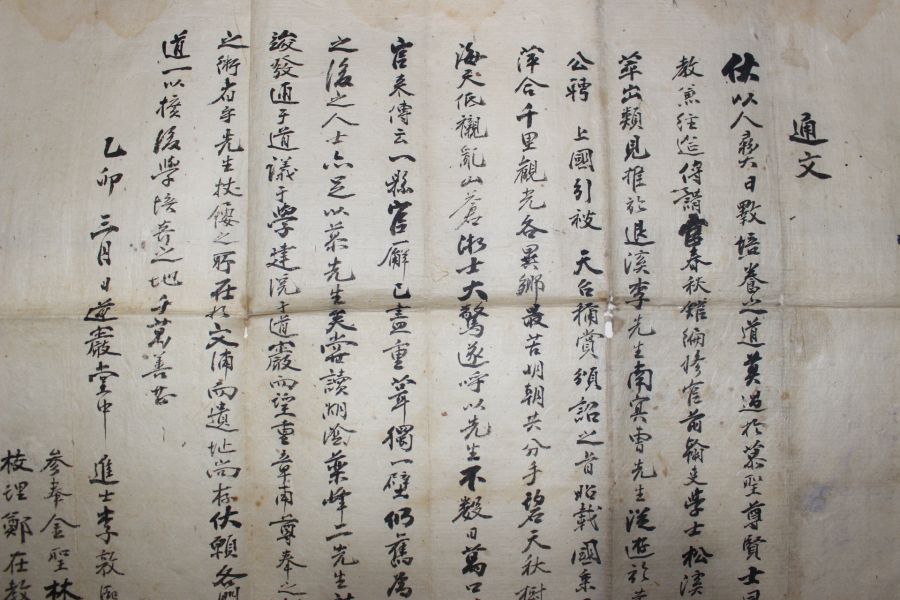 通文
伏以人彛大日斁培養之道莫過於慕聖尊賢士
教兼經筵侍講官春秋館編修官前翰史學士松溪
萃出類見推於退溪李先生南冥曺先生從遊於
公聘 上國引被 天台補賞頒詔之首始載國乘
萍合千里觀光各異鄉最苦明朝共分手碧天秋樹
海天低襯亂山蒼湖士大驚遂呼以先生不數日萬口
官來傳云一縣官廨已盡重葺獨一壁仍舊爲
之後之人士亦足以慕先生矣嘗讀湖陰藥峰二先生
遂發通于道議于學建院于道巖而望重章甫尊奉之
之術者乎先生杖屨之所在於文浦而遺址尚存伏願各門
道一以援後學培養之地千萬善甚
乙卯 三月 日道巖堂中 進士李敦
參奉金聖林
校理鄭在敎